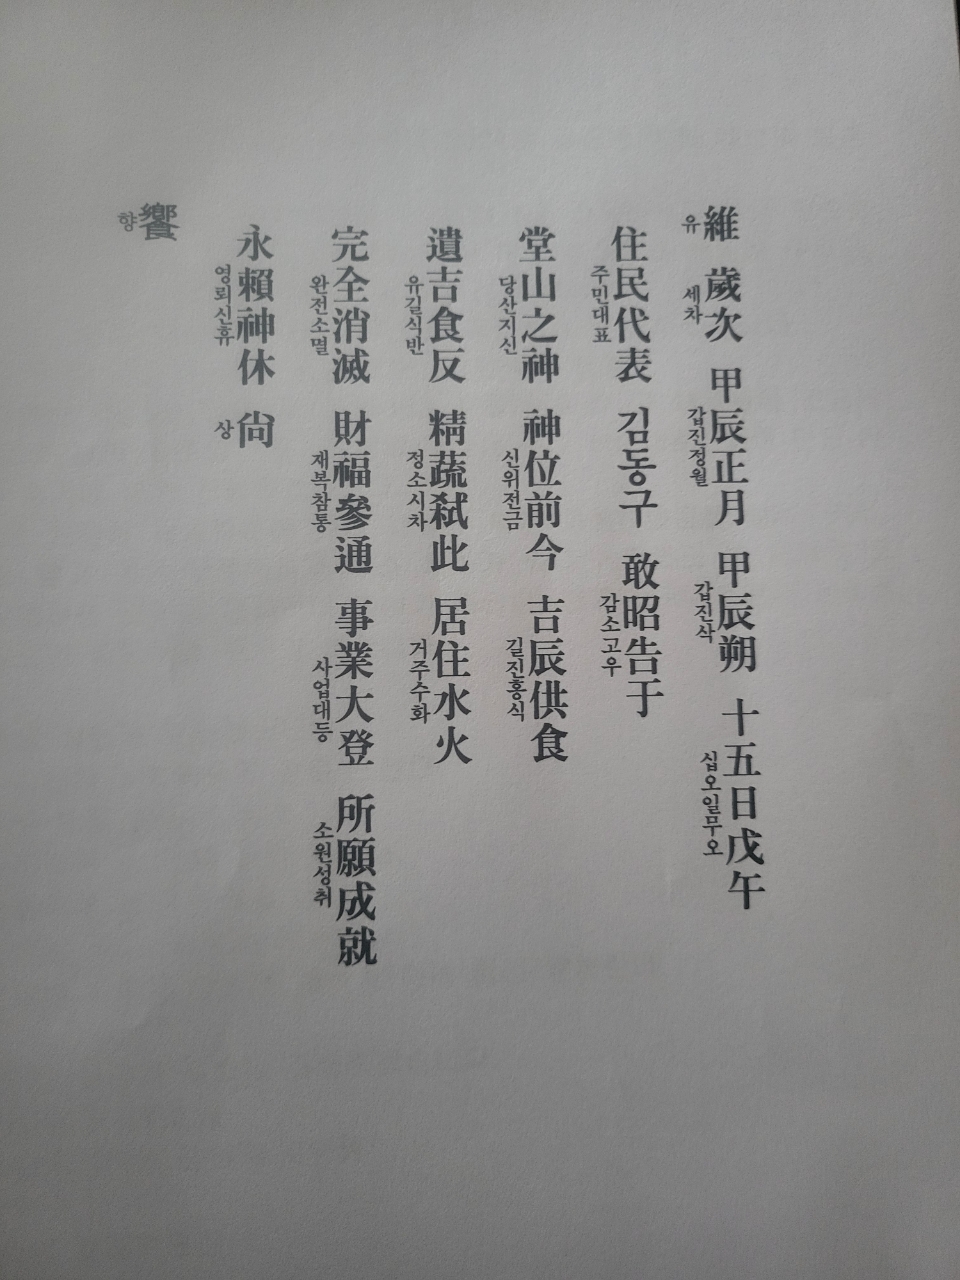 維 歲次 甲辰正月 甲辰朔 十五日戊午
유 세차 갑진정월 갑진삭 십오일무오
住民代表 김동구 敢昭告于
주민대표 감소고우
堂山之神 神位前今 吉辰供食
당산지신 신위전금 길진홍식
遺吉食反 精蔬弑此 居住水火
유길식반 정소시차 거주수화
完全消滅 財福參通 事業大登 所願成就
완전소멸 재복참통 사업대등 소원성취
永賴神休 尙
영뢰신휴 상
饗
향